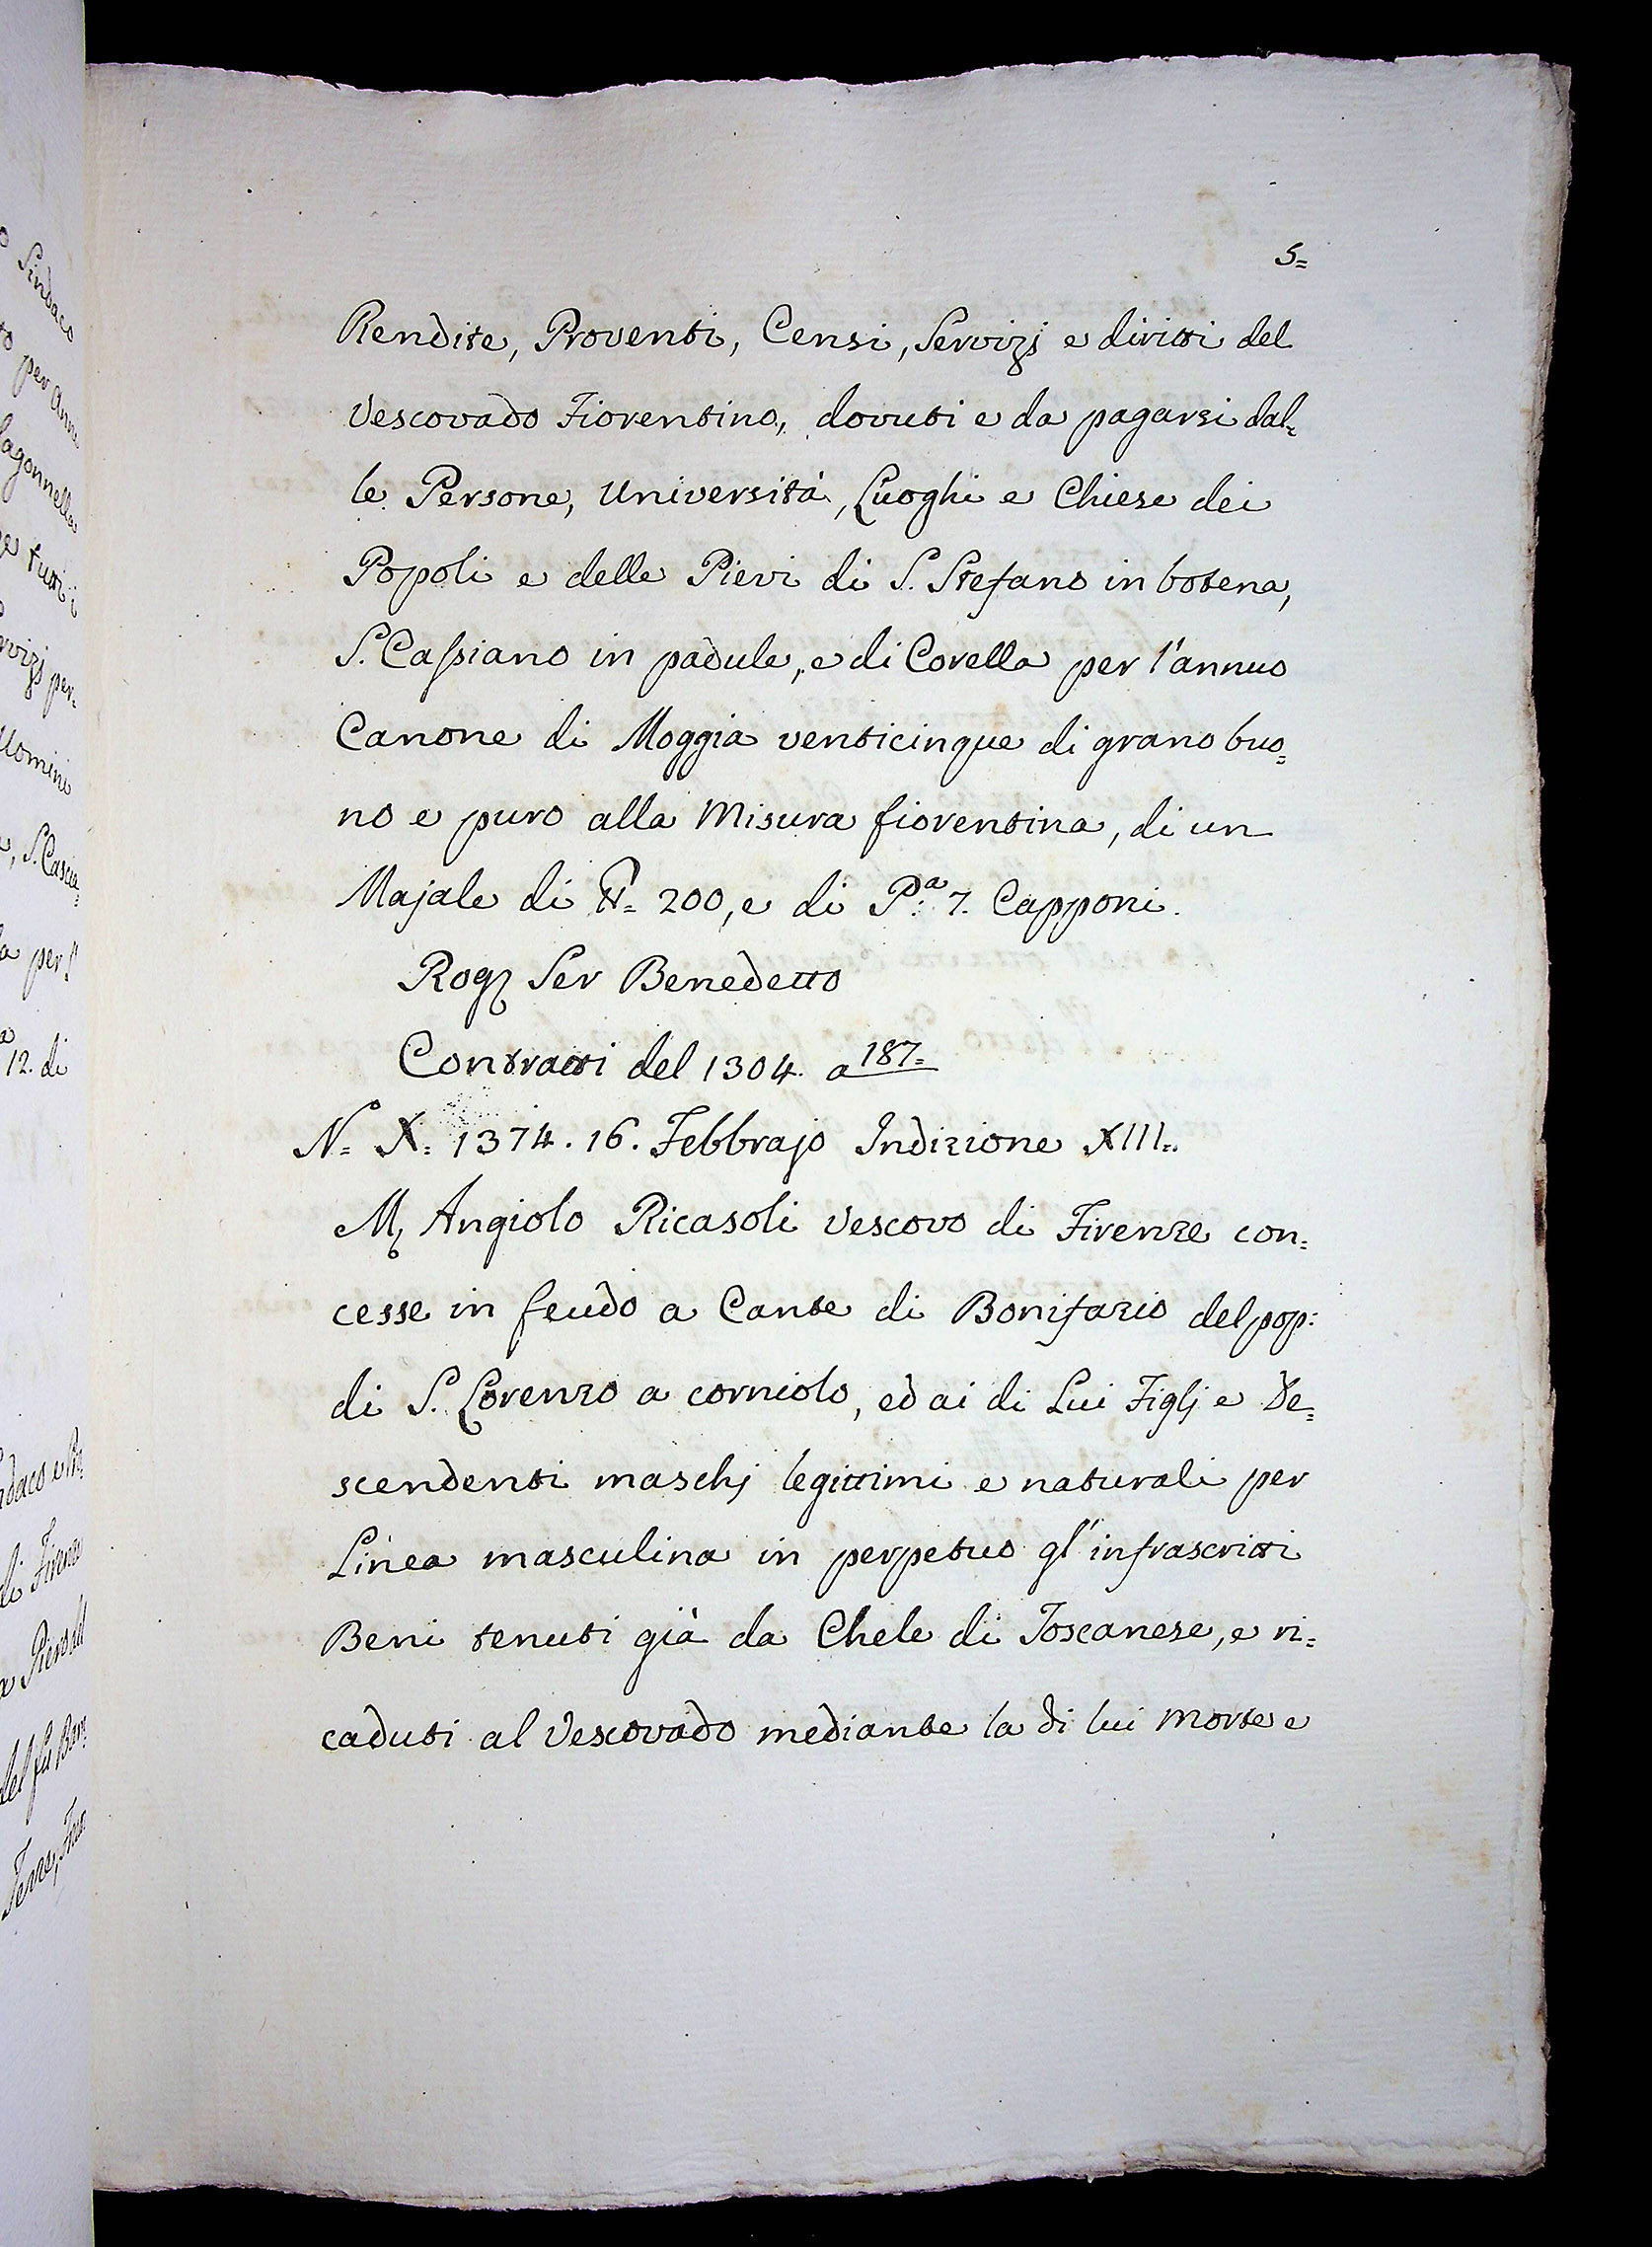 5=
Rendite, Proventi, Censi, Servizj e diritti del
Vescovado Fiorentino, dovuti e da pagarsi dal=
le Persone, Università, Luoghi e Chiese dei
Popoli e delle Pievi di S. Stefano in botena,
S. Cassiano in padule, e di Corella per l'annuo
Canone di Moggia venticinque di grano buo=
no e puro alla Misura fiorentina, di un
Majale di 200, e di P:ª 7. Capponi.
Rog Ser Benedetto
Contratti del 1304. a 187=
N= X: 1374. 16. Febbrajo Indizione XIII=.
M, Angiolo Ricasoli Vescovo di Firenze con=
cesse in feudo a Cante di Bonifazio del pop:
di S. Lorenzo a corniolo, ed ai di Lui Figlj e De=
scendenti maschj legittimi e naturali per
Linea masculina in perpetuo gl'infrascritti
Beni tenuti già da Chele di Toscanese, e ri=
caduti al Vescovado mediante la di lui morte e
Sindaco
per
tutti i
Uomini
12. di
di Firenze